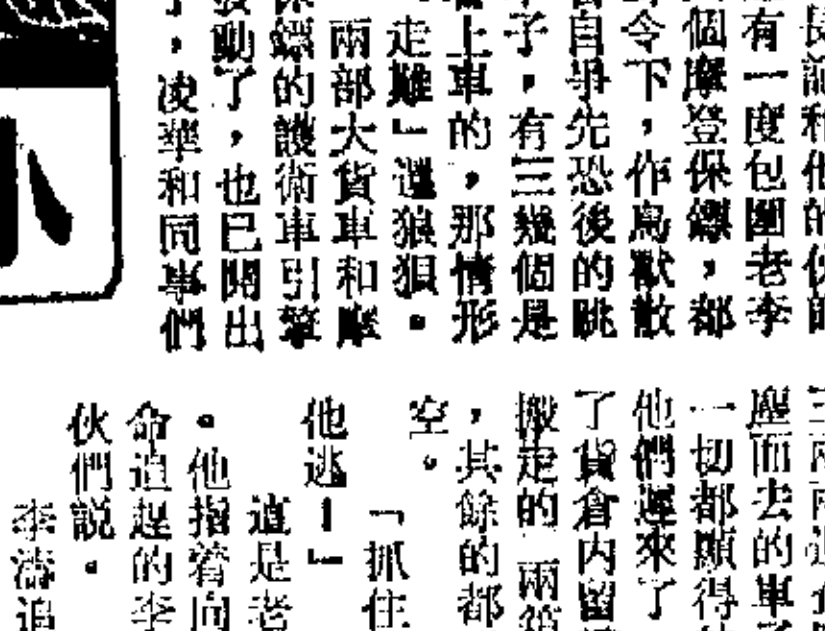 長記和他的保
有一度包圍老李
個摩登保鏢，都
令下，作鳥獸散
自爭先恐後的跳
子，有三幾個是
上車的，那情形
走難」還狼狽。
兩部大貨車和摩
鏢的護衛車引擎
發動了，也已開出
，凌華和同事們
小
壓而去的車子
一切都顯得
他們運來了
了貨倉內留
搬走的兩箱
，其餘的都
空。
「抓住
他逃！」
這是老
。他指着向
命追趕的李
伙們說。
李濤追